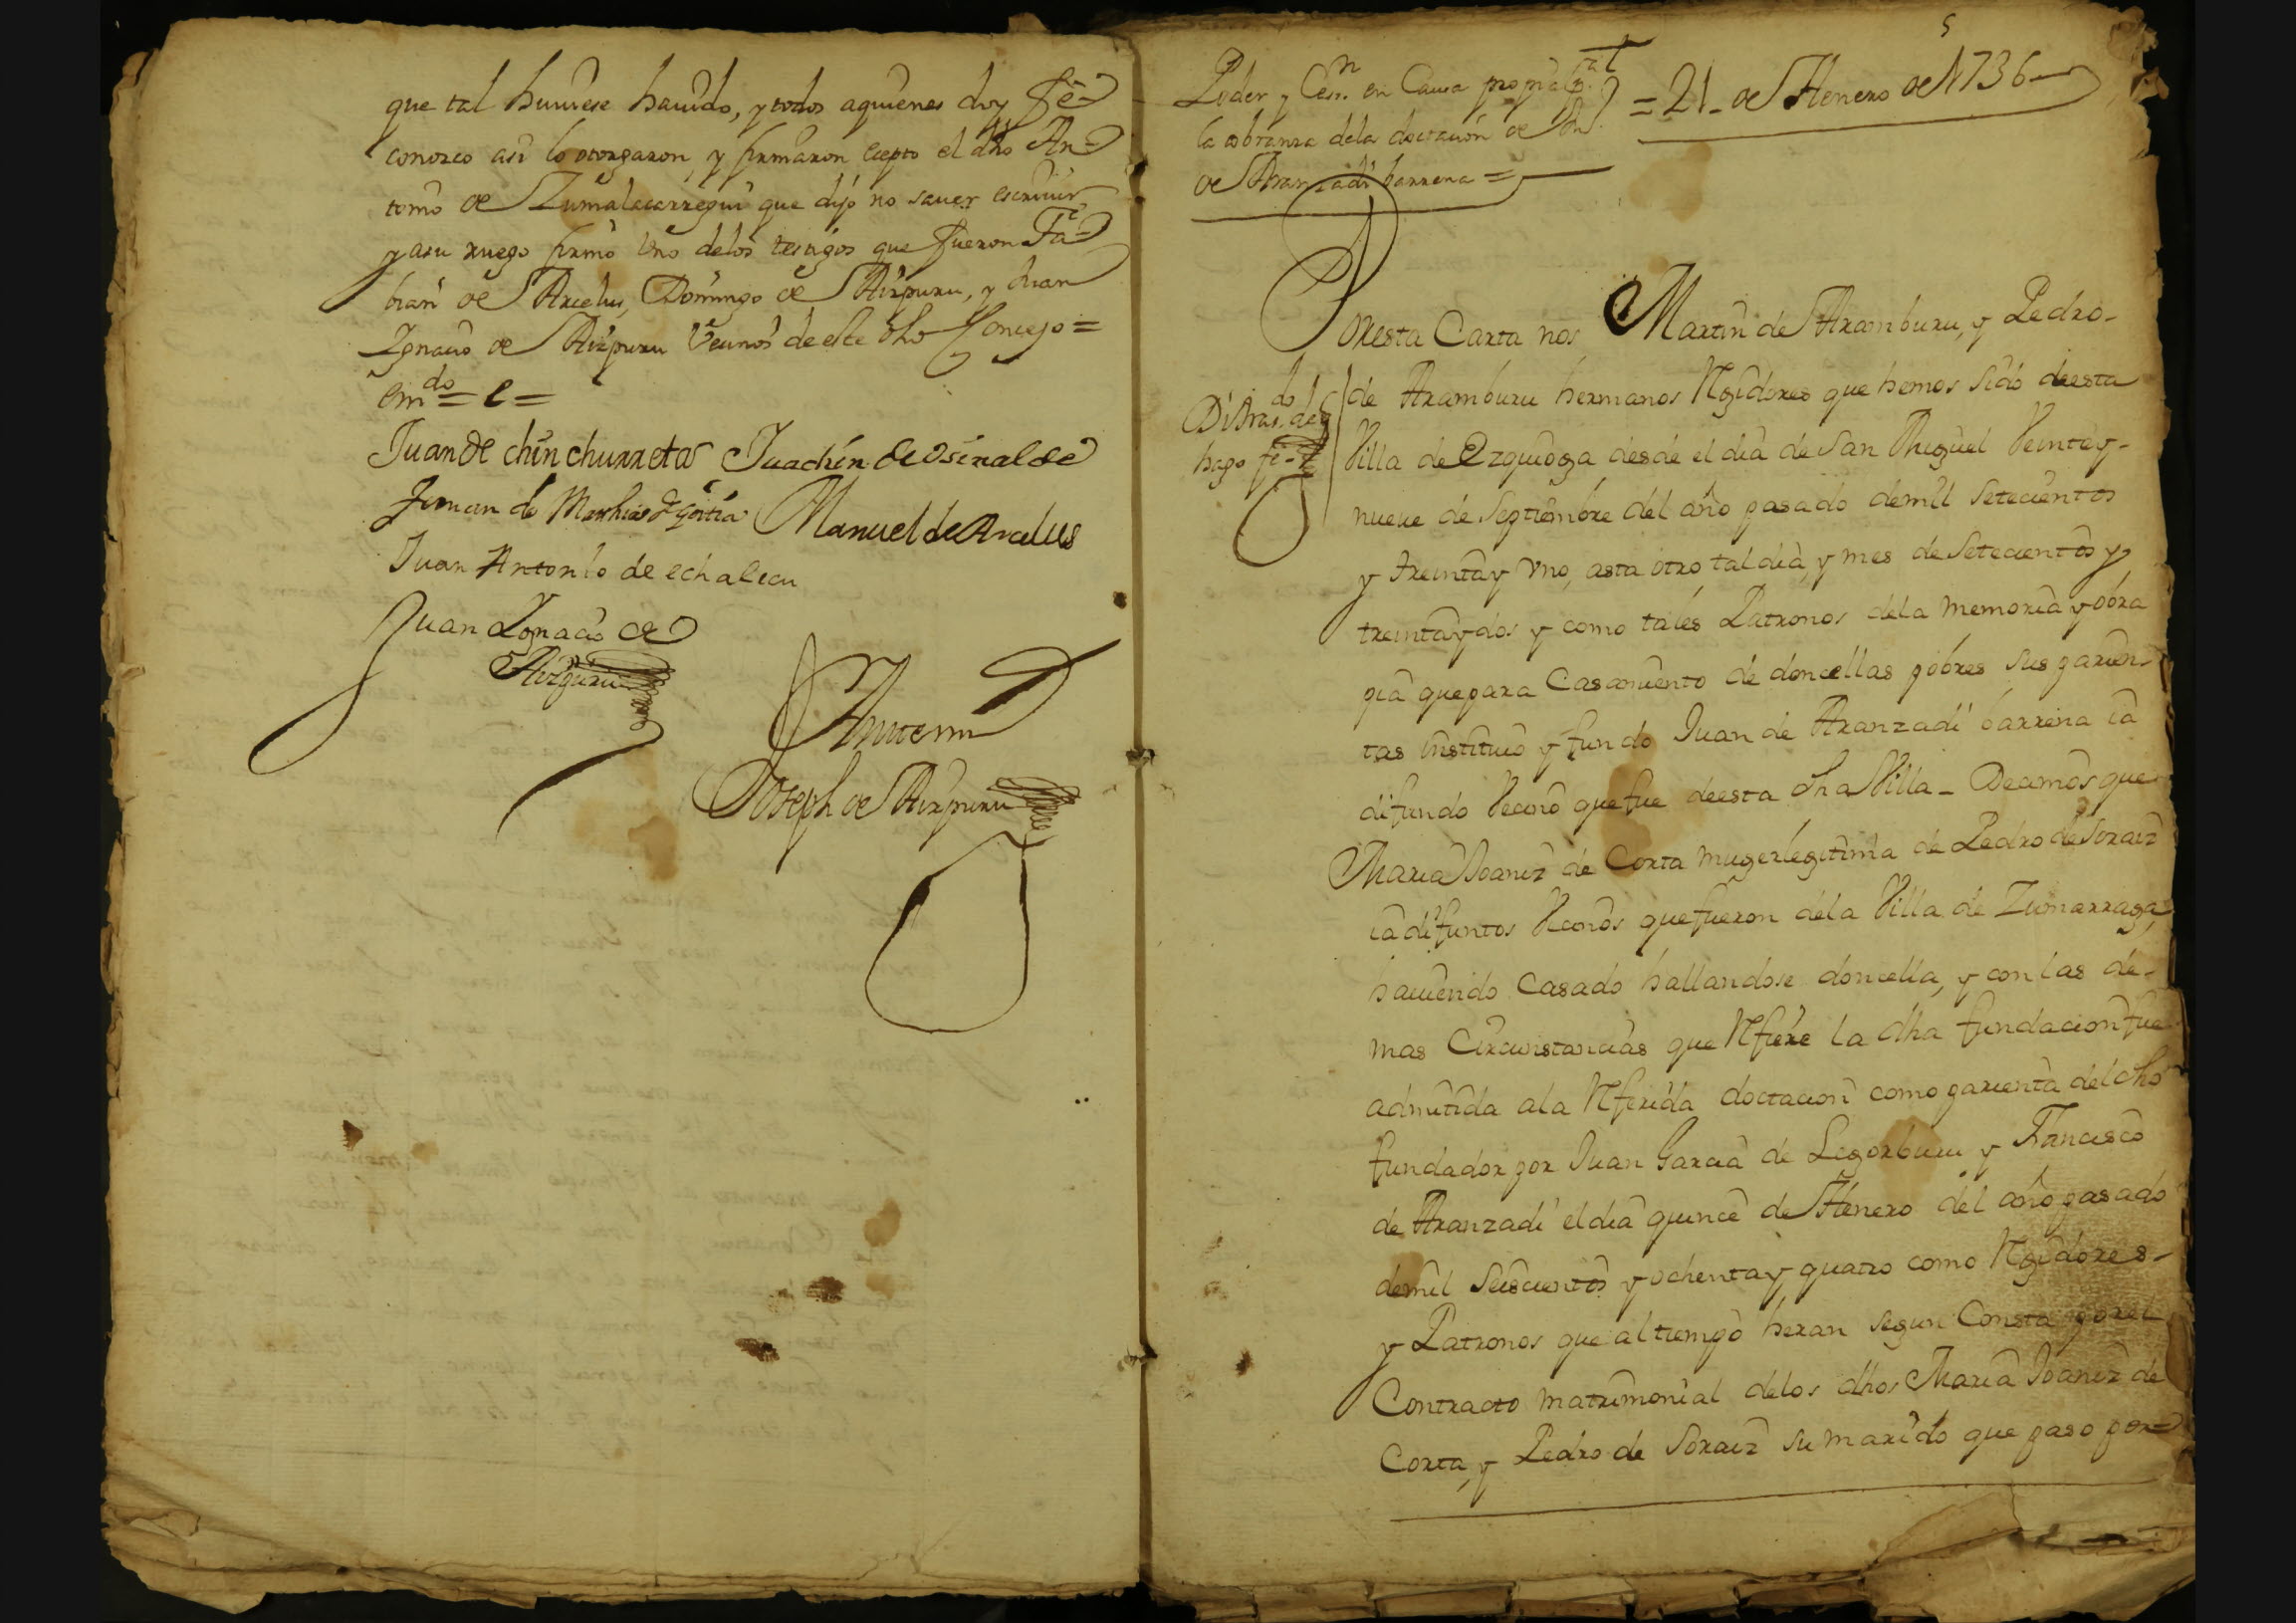 que tal huuiese hauido, y todos aquienes doy feè
conozco asi lo otorgaron, y firmaron ecepto el dho An=
tonio de Zumalacarregui que dijo no sauer escriuir
y asu ruego firmò vno delos testigos que fueron Fa=
bian de Arcelus, Domingo de Aizpuru, y Juan
Ignacio de Aizpuru Vecinos de este dho Concejo=
Em.do = e =
Juan de chinchurreta Juachin de Osinalde
Juan de Mathias de goitia Manuel de Arcelus
Juan Antonio de echalecu
Juan Ygnacio de
Aizpuru
Antemi
Joseph de Aizpuru
5
Poder y Cesn. en Causa propia
la cobranza dela doctación de Jn.
de Aranzadi barrena =
= 21 - de Henero de 1736
Poresta Carta nos Martin de Aramburu, y Pedro-
de Aramburu hermanos Rexidores que hemos sido deesta
hago fe
Villa de Ezquioga desde el dia de San Miguel Veintey-
nueue de Septiembre del año pasado demil setecientos
y treintay vno, asta otro tal dia, y mes de setecientos y
treintaydos y como tales Patronos dela memoria y obra
pia que para Casamiento de doncellas pobres sus parien-
tas instituio y fundo Juan de Aranzadi barrena ia
difundo Vecino que fue deesta dha Villa - Decimos que
Maria Joaniz de Corta muger legitima de Pedro de Soraiz
ia difuntos Vecinos que fueron dela Villa de Zumarraga,
hauiendo Casado hallandose doncella, y con las de-
mas Circunstancias que Refiere la dha fundacion fue
admitida ala Referida doctacion como parienta del dho
fundador por Juan Garcia de Legorburu y Francisco
de Aranzadi el dia quince de Henero del año pasado
demil seiscientos y ochentay quatro como Rexidores-
y Patronos que al tiempo heran segun Consta por el
Contracto matrimonial delos dhos Maria Joaniz de
Corta, y Pedro de Soraiz su marido que paso por